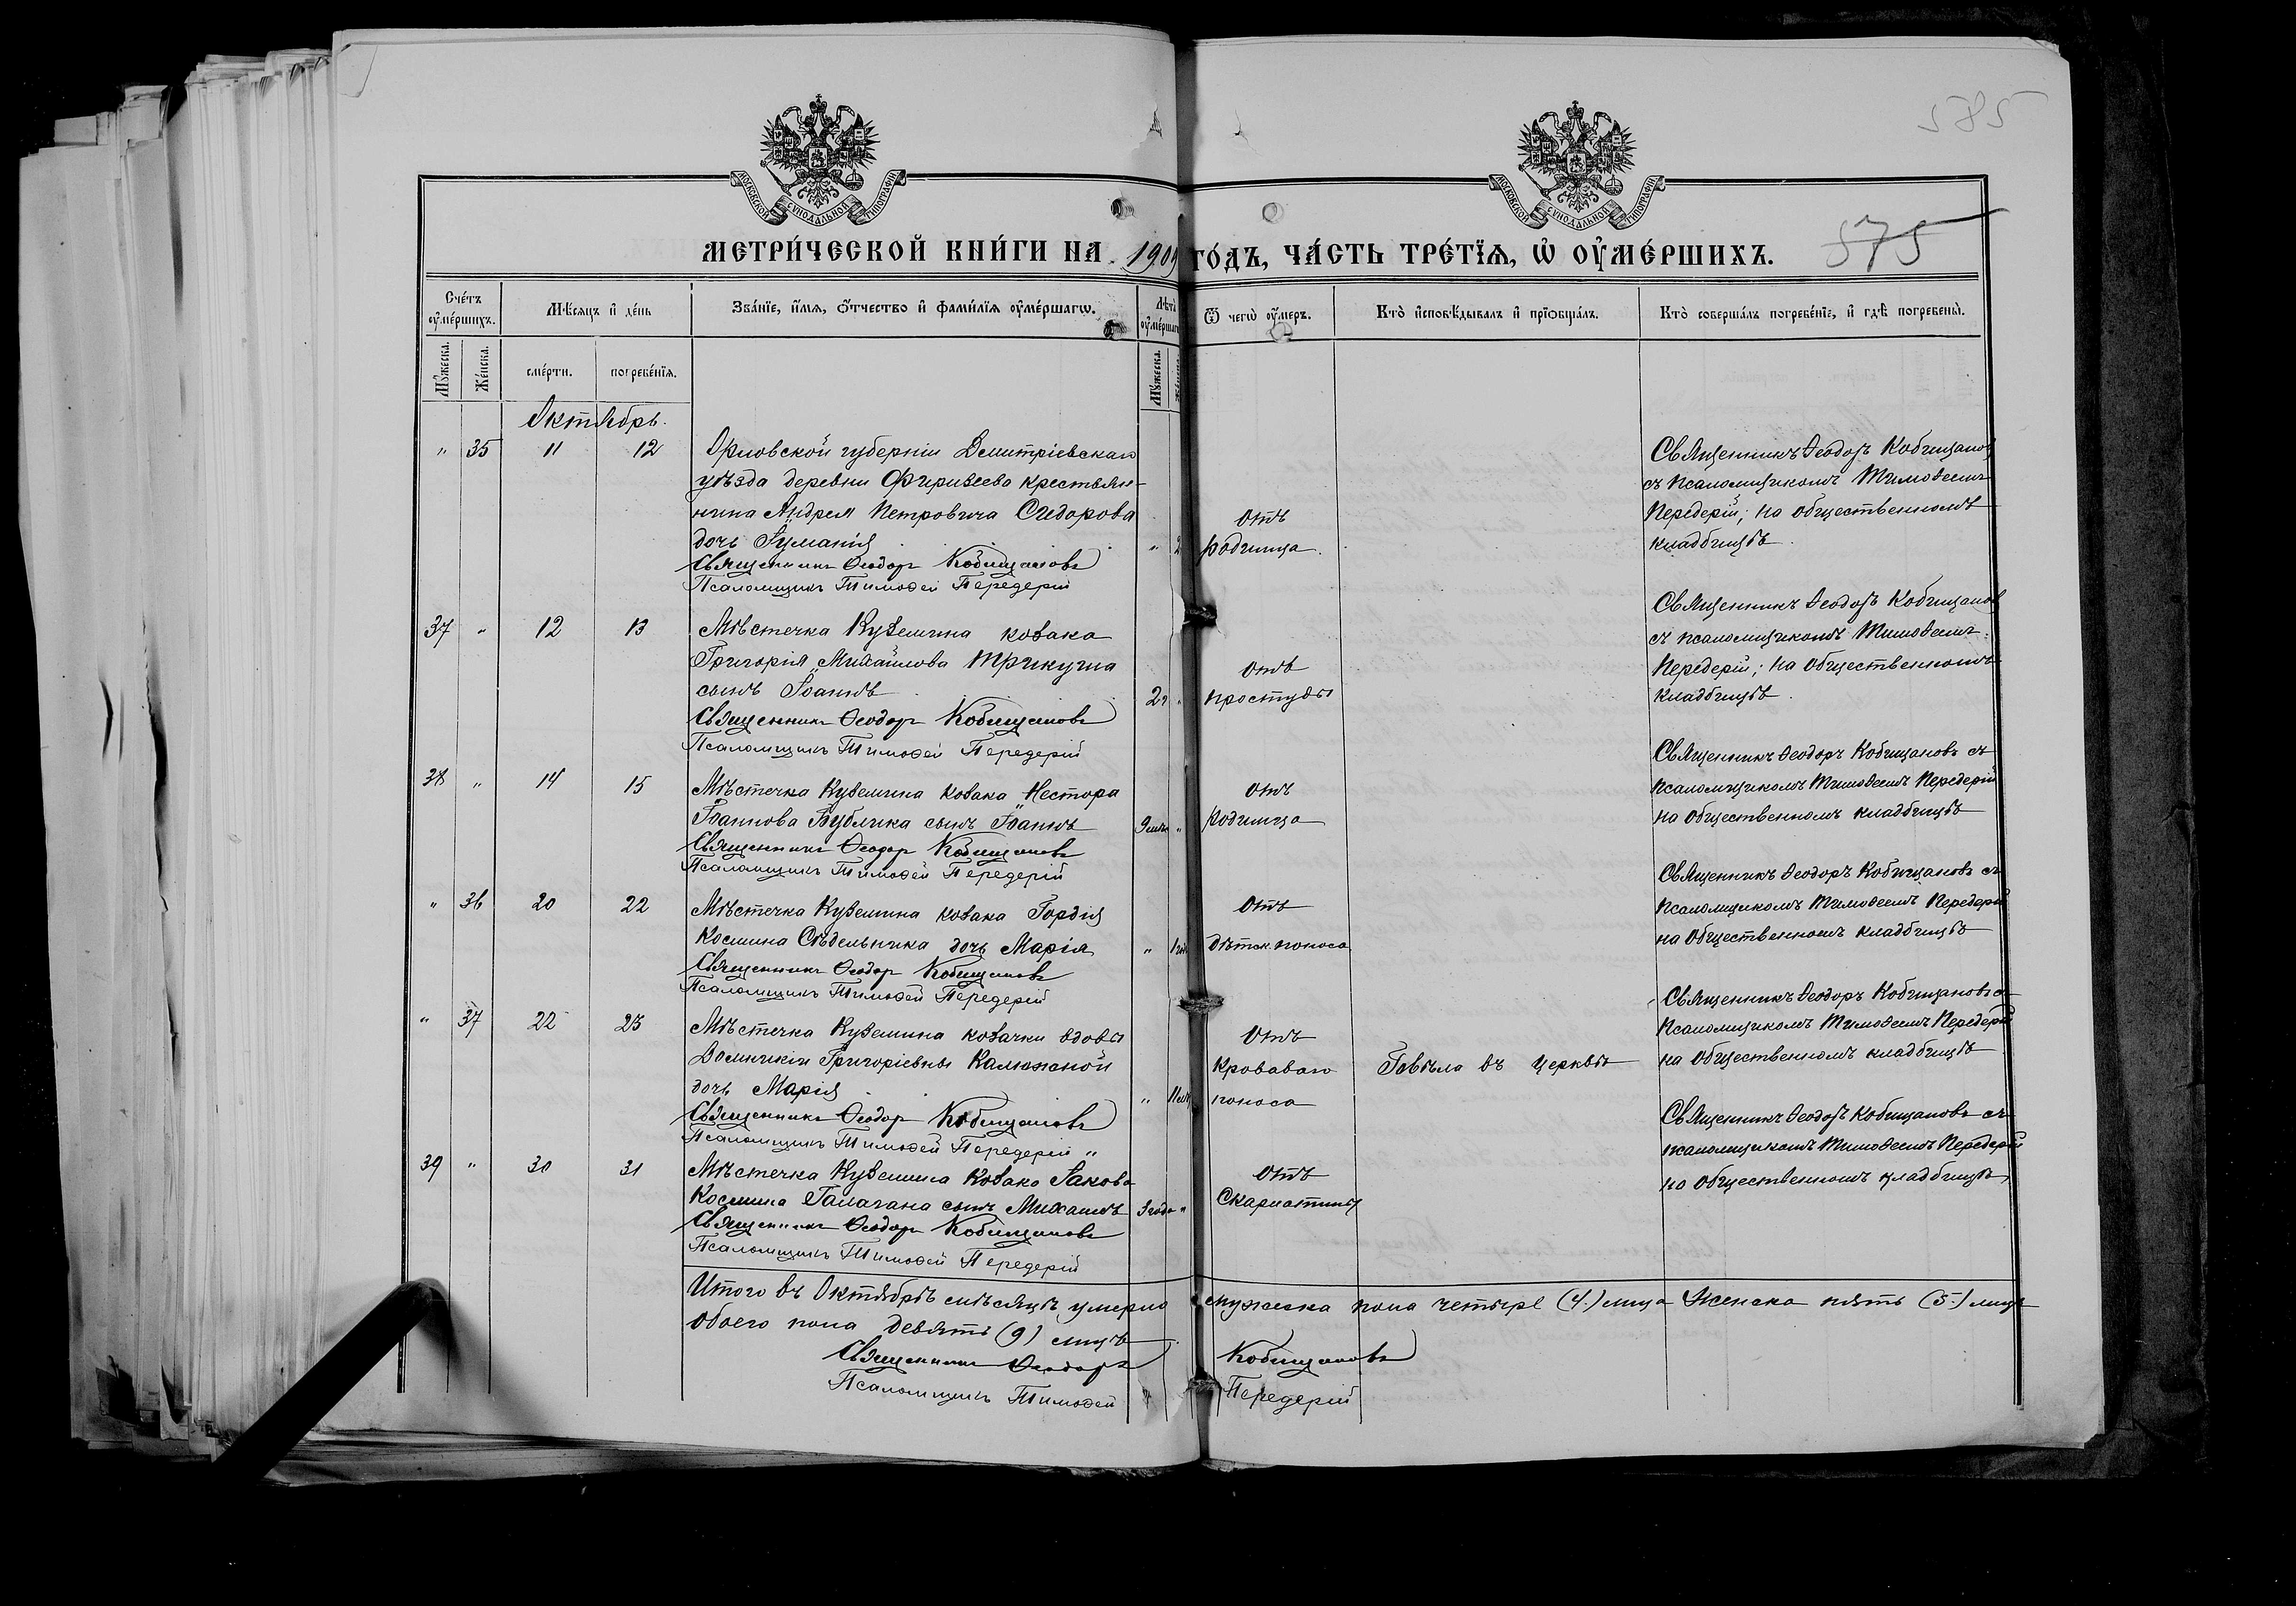 585
МОСКОВСКОЙ СУНОДАЛЬНОЙ ТИПОГРАФІИ
МОСКОВСКОЙ СУНОДАЛЬНОЙ ТИПОГРАФІИ
МЕТРИ́ЧЕСКОЙ КНИ́ГИ НА 1909 ГО́ДЪ, ЧА́СТЬ ТРЕ́ТЇѦ, Ѡ҆ ОУ҆МЕ́РШИХЪ.
575
Счéтъ оу҆мéршихъ.
Мѣ́сяцъ и҆ дéнь
Звáнїе, и҆́мѧ, ѻ҆́тчество и҆ фами́лїѧ оу҆мéршагѡ.
Лѣ́та оу҆мéршагѡ
Ѿ чегѡ̀ оу҆́меръ.
Ктѡ̀ и҆сповѣ́дывалъ и҆ прїѡбщáлъ.
Ктѡ̀ совершáлъ погребéнїе, и҆ гдѣ̀ погребены̀.
Мꙋ́жеска.
Жéнска.
смéрти.
погребéнїѧ.
Мꙋ́жеска.
Октябрь.
" 35 11 12 Орловской губерніи Дмитріевскаго
уѣзда деревни Фиривеево крестьян-
нина Андрея Петровича Сидорова
дочь Іуманія " 2
Священникъ Ѳеодоръ Кобищановъ
Псаломщикъ Тимоѳей Передерій
Отъ
родимца.
Священникъ Ѳеодоръ Кобищановъ
съ псаломщикомъ Тимоѳеемъ
Передерій; на общественномъ
кладбищѣ.
37 " 12 13 Мѣстечка Куземина козака
Григорія Михайлова Трикуша
сынъ Іоаннъ 2г "
Священникъ Ѳеодоръ Кобищановъ
Псаломщикъ Тимоѳей Передерій
Отъ
простуды
Священникъ Ѳеодоръ Кобищановъ
съ псаломщикомъ Тимоѳеемъ
Передерій; на общественномъ
кладбищѣ.
38 " 14 15 Мѣстечка Куземина козака Нестора
Іоаннова Бублика сынъ Іоаннъ 9 мѣс "
Священникъ Ѳеодоръ Кобищановъ
Псаломщикъ Тимоѳей Передерій
Отъ
родимца
Священникъ Ѳеодоръ Кобищановъ съ
псаломщикомъ Тимоѳеемъ Передерій
на общественномъ кладбищѣ
" 36 20 22 Мѣстечка Куземина козака Гордія
Космина Сѣдельника дочь Марія " 1 год
Священникъ Ѳеодоръ Кобищановъ
Псаломщикъ Тимоѳей Передерій
Отъ
дѣтск. поноса
Священникъ Ѳеодоръ Кобищановъ съ
псаломщикомъ Тимоѳеемъ Передерій
на общественномъ кладбищѣ
" 37 22 23 Мѣстечка Куземина козачки вдовы
Домникіи Григоріевны Калюжной
дочь Марія "
Священникъ Ѳеодоръ Кобищановъ
Псаломщикъ Тимоѳей Передерій "
Отъ
кроваваго
поноса
Говѣла въ церквѣ
Священникъ Ѳеодоръ Кобищановъ съ
псаломщикомъ Тимоѳеемъ Передерій
на общественномъ кладбищѣ
39 " 30 31 Мѣстечка Куземина козака Іакова
Космина Галагана сынъ Михаилъ 3 года "
Священникъ Ѳеодоръ Кобищановъ
Псаломщикъ Тимоѳей Передерій
Отъ
Скарлатины
Священникъ Ѳеодоръ Кобищановъ съ
псаломщикомъ Тимоѳеемъ Передерій
на общественномъ кладбищѣ
Итого въ Октябрѣ мѣсяцѣ умерло мужеска пола четыре (4.) лица Женска пять (5.) лицъ
обоего пола девять (9) лицъ.
Священникъ Ѳеодоръ Кобищановъ
Псаломщикъ Тимоѳей Передерій